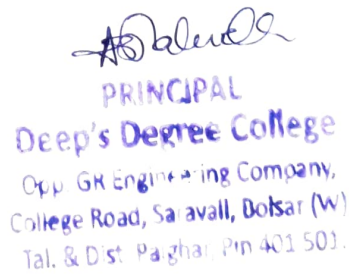 PRINCIPAL
Deep's Degree College
Opp GR Engineering Company,
College Road, Saravali, Boisar (W)
Tal. & Dist. Palghar, Pin 401 501.